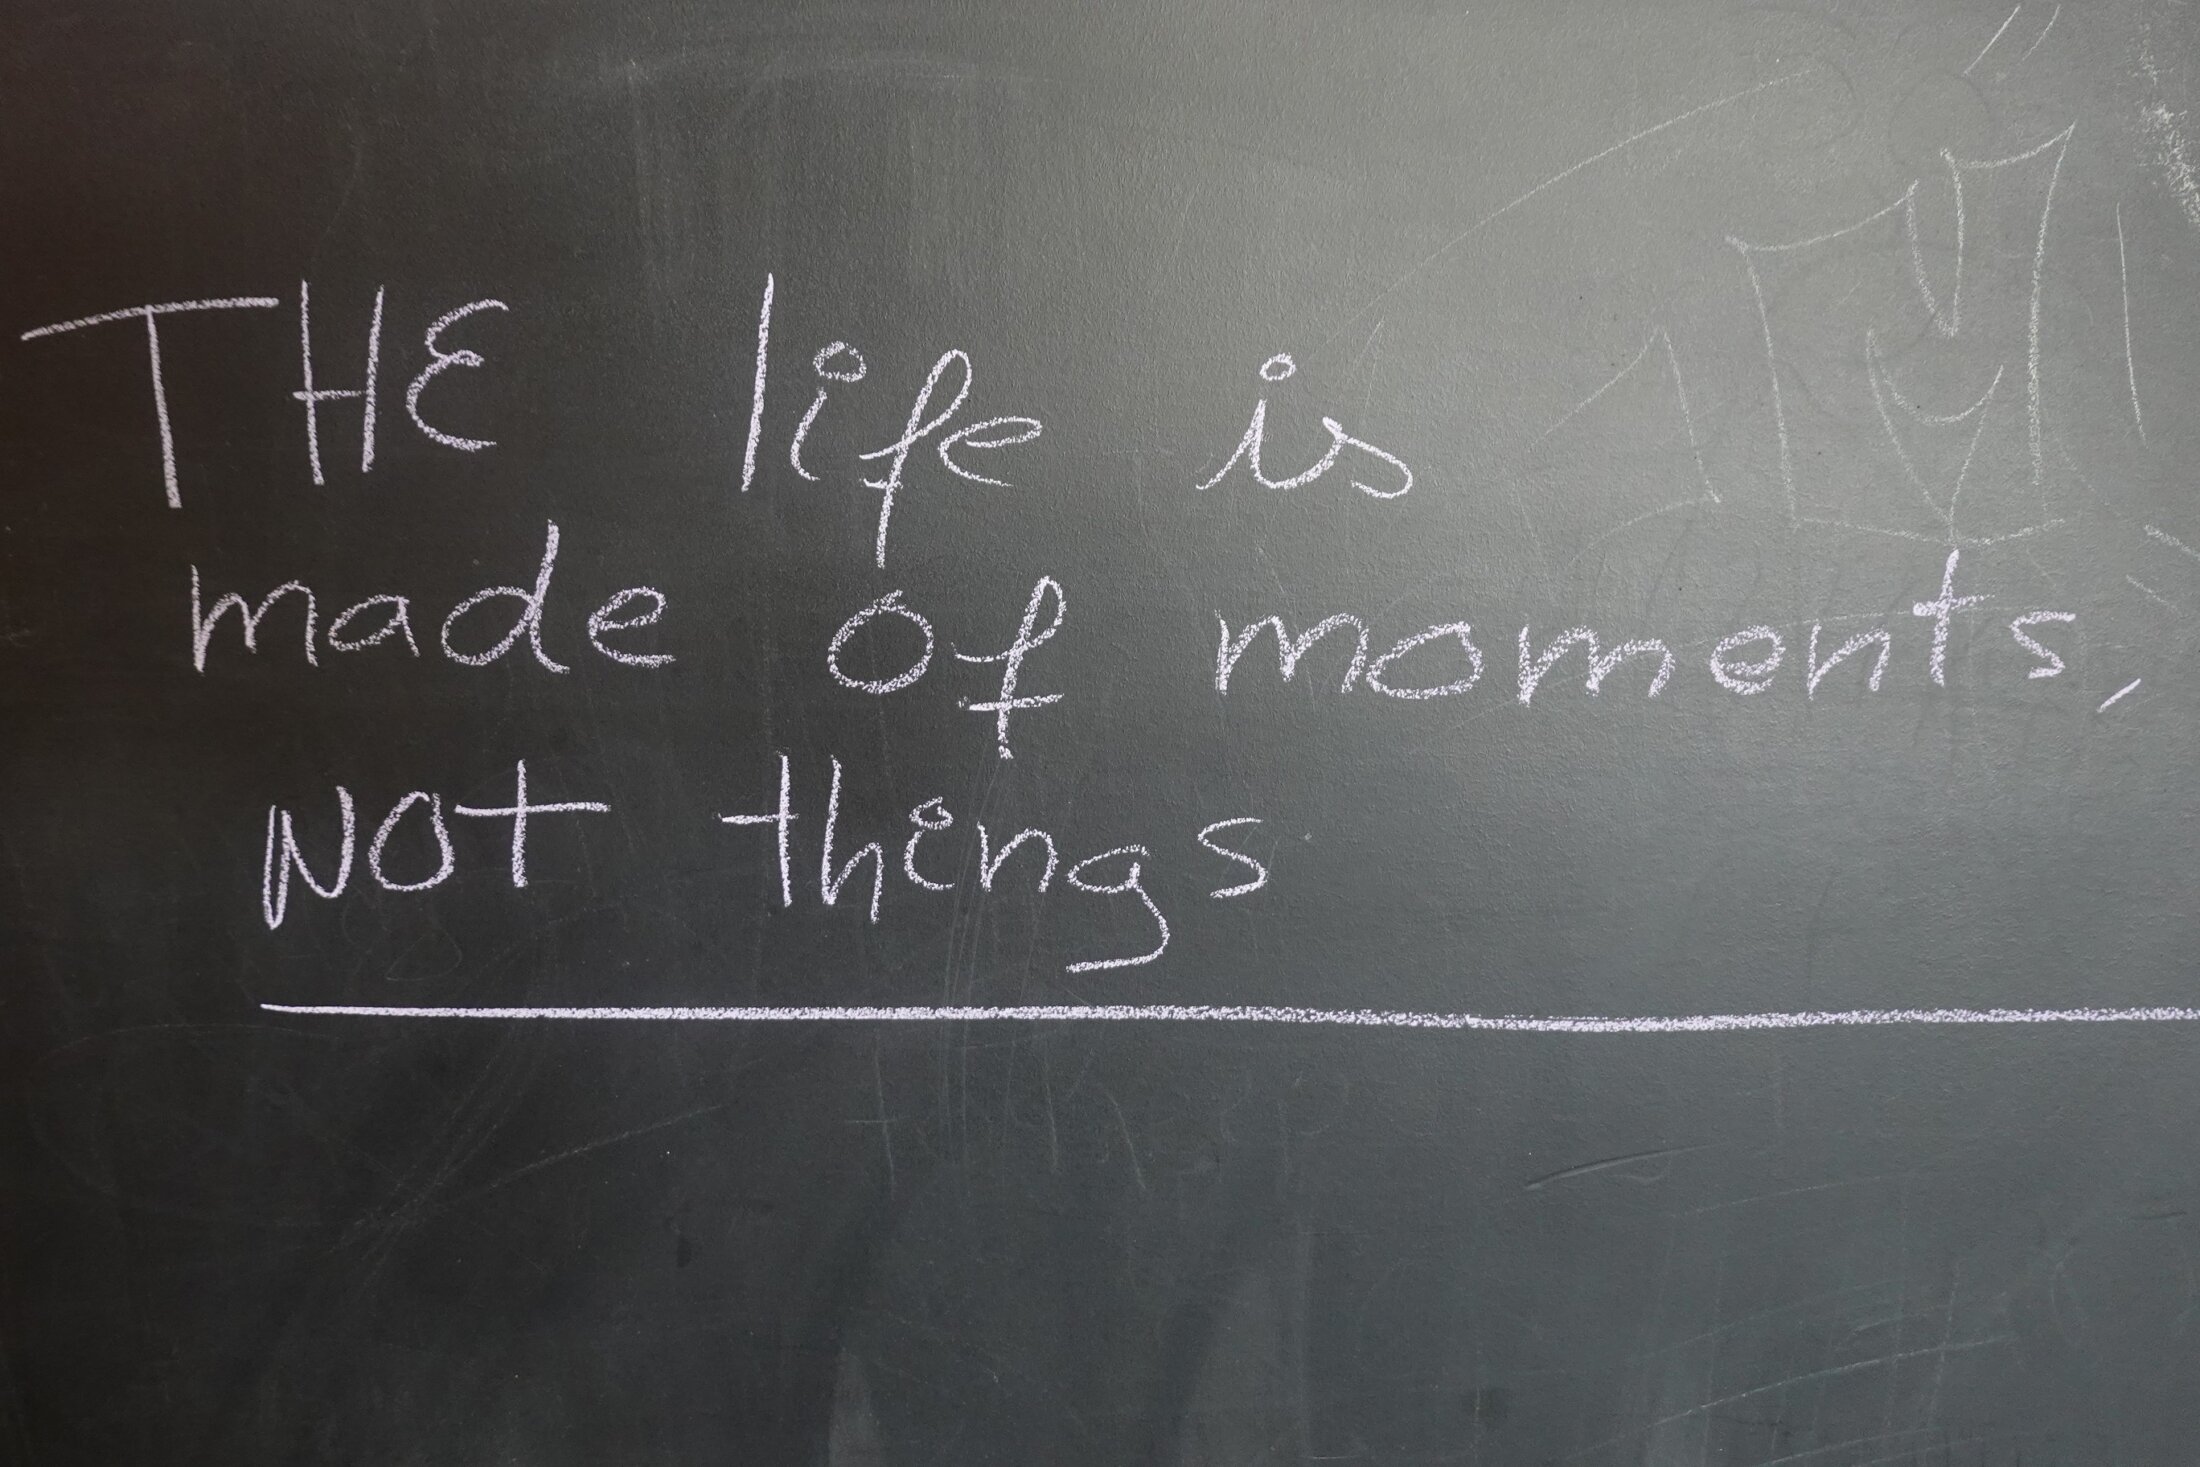 THE life is
made of moments,
NOT things